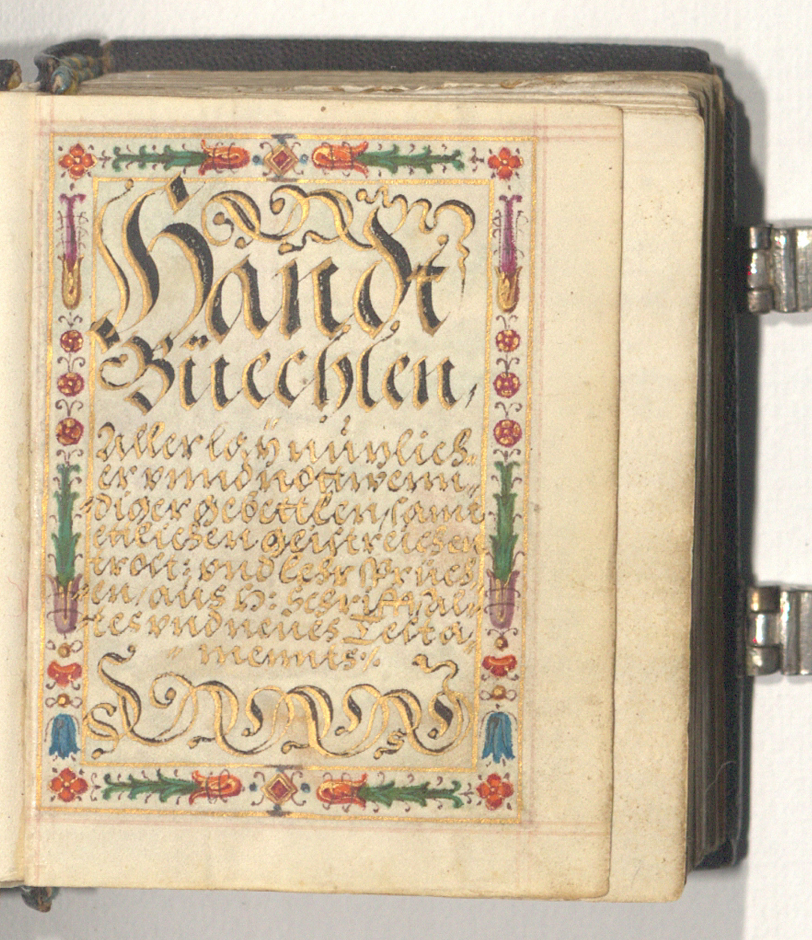 Handt
Büechlen,
Allerlaÿ nüzlich,,
er vnnd nottwenn,,
diger gebettlen / samt
etlichen geistreichen
trost: vnd lehr Sprüch,,
en / aus H: Schrifft / al,,
tes vnd neues Testa,,
ments ./.